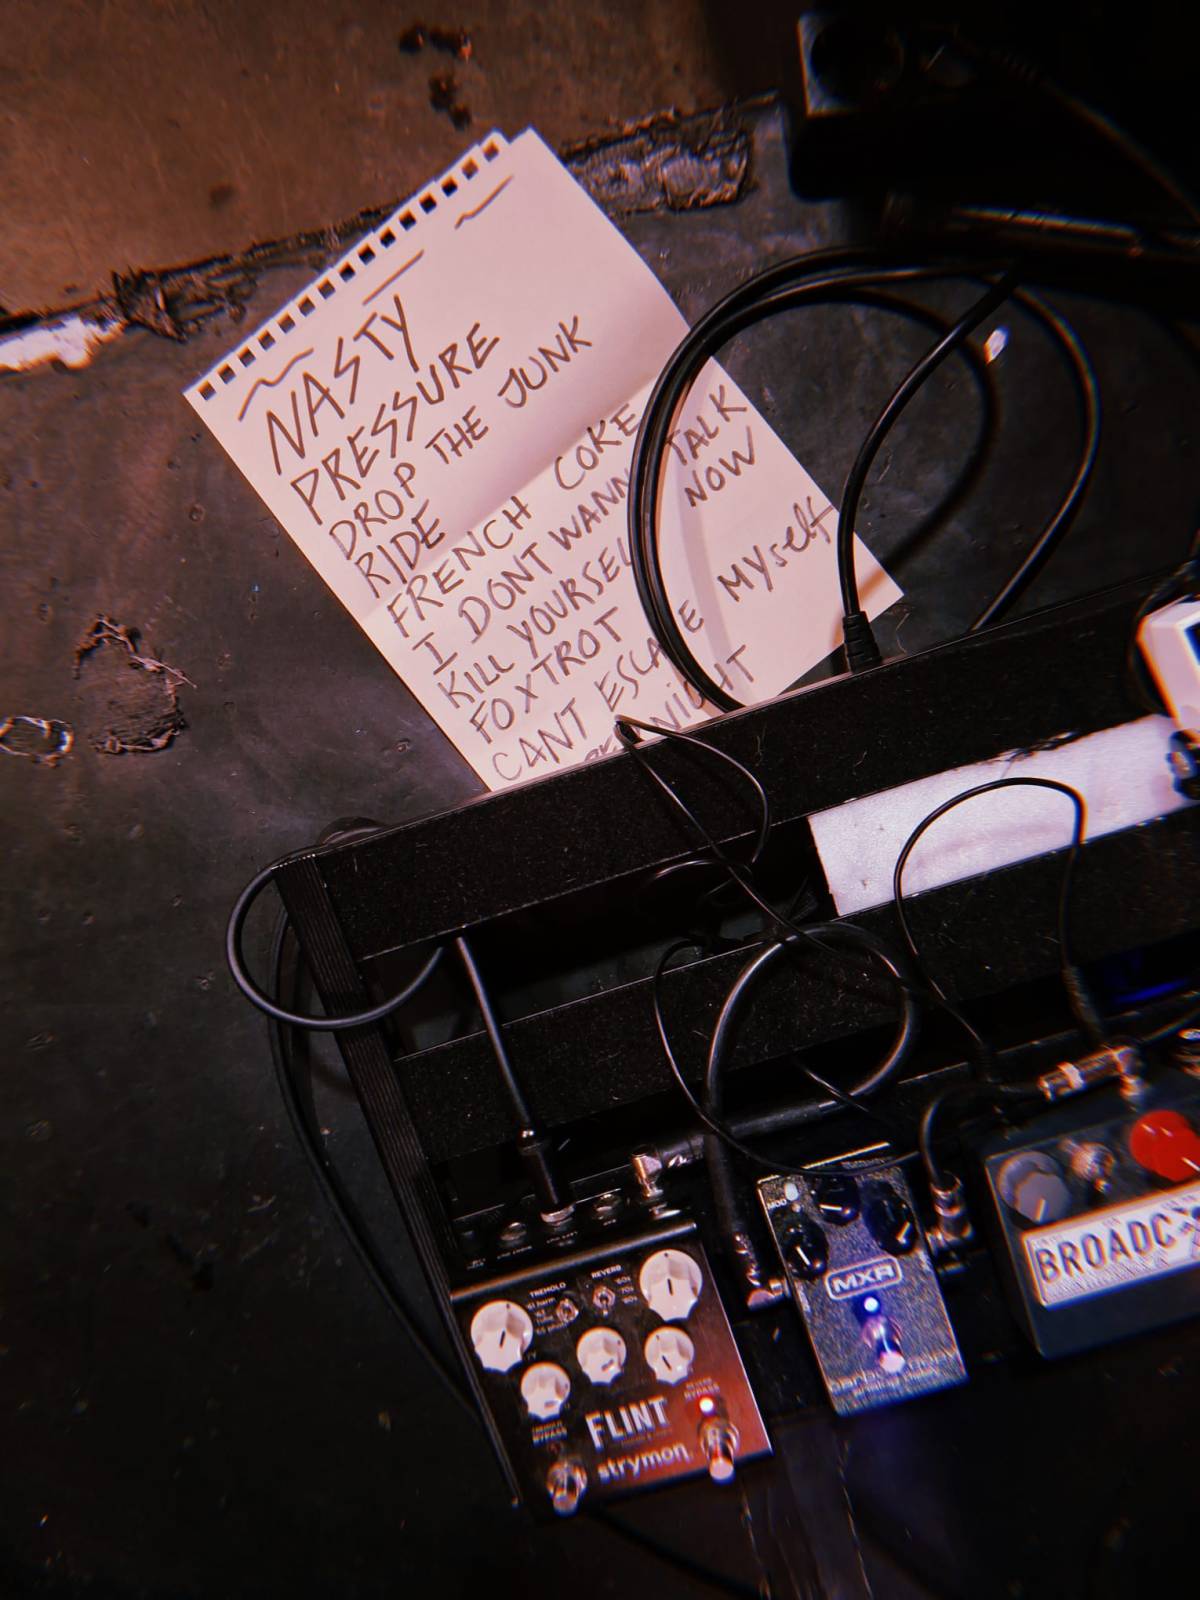 NASTY
PRESSURE
DROP THE JUNK
RIDE
FRENCH COKE
I DONT WANN TALK
KILL YOURSEL NOW
FOXTROT
CANT ESCAPE MYself
NIGHT
TREMOLO
REVERB
'60s
'70s
'80s
FLINT
strymon
BYPASS
BYPASS
MXR
BROADC